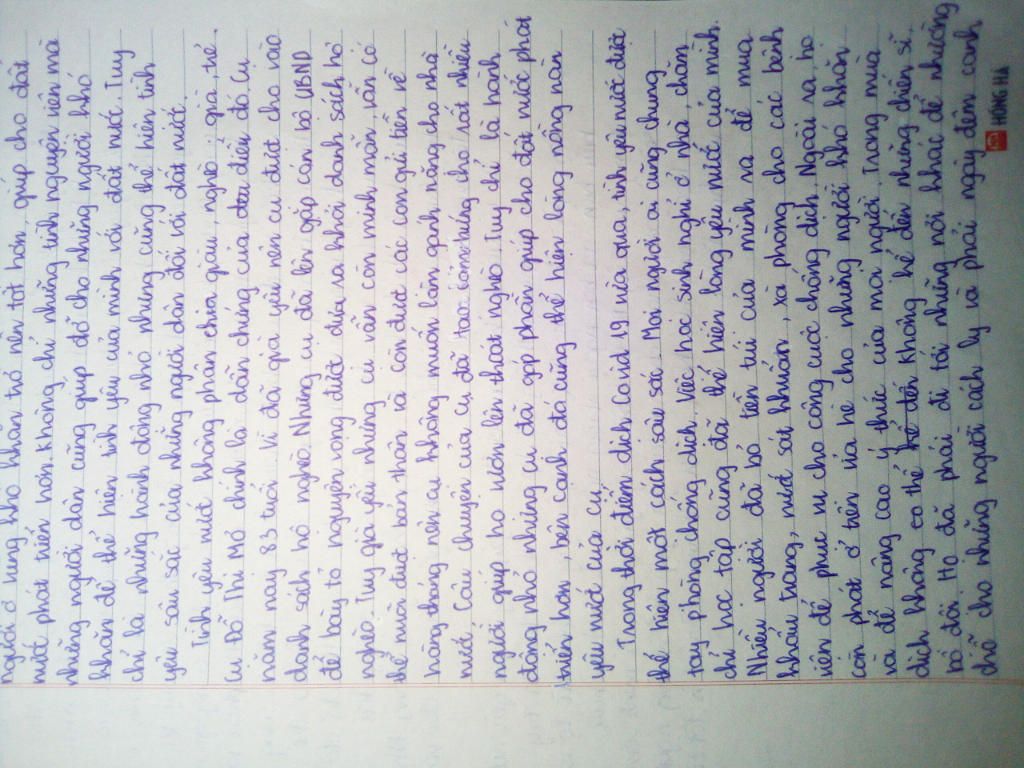 người ở vùng khó khăn trở nên tốt hơn, giúp cho đất
nước phát triển hơn. Không chỉ những tình nguyện viên mà
những người dân cũng giúp đỡ cho những người khó
khăn để thể hiện tình yêu của mình với đất nước. Tuy
chỉ là những hành động nhỏ nhưng cũng thể hiện tình
yêu sâu sắc của những người dân đối với đất nước.
Tình yêu nước không phân chia giàu, nghèo, già, trẻ.
Cụ Đỗ Thị Mơ chính là dẫn chứng của điều đó. Cụ
năm nay 83 tuổi. Vì đã già yếu nên cụ được cho vào
danh sách hộ nghèo. Nhưng cụ đã lên gặp cán bộ UBND
để bày tỏ nguyện vọng được đưa ra khỏi danh sách hộ
nghèo. Tuy già yếu nhưng cụ vẫn còn minh mẫn, vẫn có
thể nuôi được bản thân và còn được các con gửi tiền về
hàng tháng nên cụ không muốn làm gánh nặng cho nhà
nước. Câu chuyện của cụ đã tạo cảm hứng cho rất nhiều
người giúp họ vươn lên thoát nghèo. Tuy chỉ là hành
động nhỏ nhưng cụ đã góp phần giúp cho đất nước phát
triển hơn, bên cạnh đó cũng thể hiện lòng nồng nàn
yêu nước của cụ.
Trong thời điểm dịch Covid 19 vừa qua, tình yêu nước được
thể hiện một cách sâu sắc. Mọi người ai cũng chung
tay phòng chống dịch. Việc học sinh nghỉ ở nhà, chăm
chỉ học tập cũng đã thể hiện lòng yêu nước của mình.
Nhiều người đã bỏ tiền túi của mình ra để mua
khẩu trang, nước sát khuẩn, xà phòng cho các bệnh
viện để phục vụ cho công cuộc chống dịch. Ngoài ra, họ
còn phát ở trên vỉa hè cho những người khó khăn
và để nâng cao ý thức của mọi người. Trong mùa
dịch không thể không kể đến những chiến sĩ
bộ đội. Họ đã phải đi tới những nơi khác để nhường
chỗ cho những người cách ly và phải ngày đêm canh
HỒNG HÀ